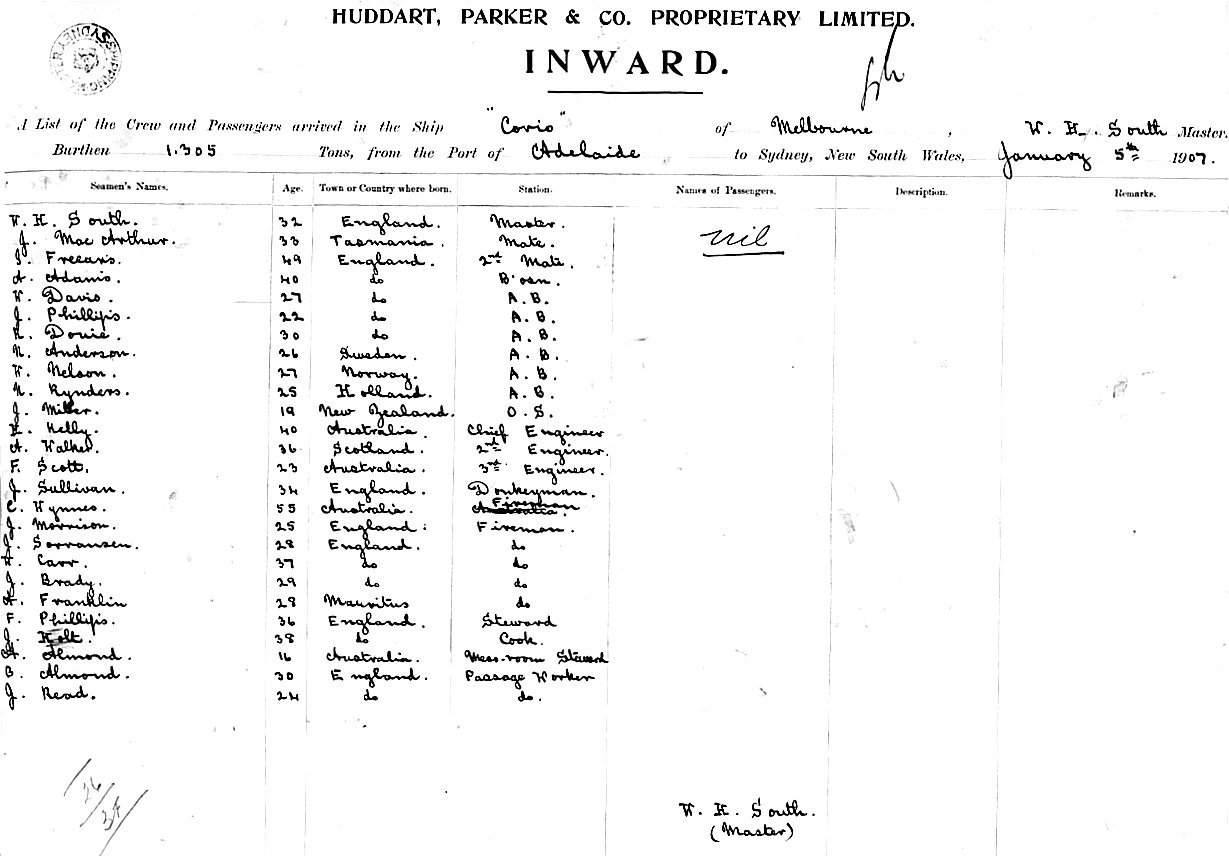 HUDDART, PARKER & CO. PROPRIETARY LIMITED.
INWARD.
A List of the Crew and Passengers arrived in the Ship "Corio" of Melbourne, W. H. South Master.
Burthen 1.305 Tons, from the Port of Adelaide to Sydney, New South Wales, January 5th 1907.
Seamen's Names. Age. Town or Country where born. Station. Names of Passengers. Description. Remarks.
W. H. South. 32 England. Master.
J. Mac Arthur. 33 Tasmania. Mate. nil
Freears. 49 England. 2nd Mate.
A. Adams. 40 do B'osn.
W. Davis. 27 do A.B.
J. Phillips. 22 do A.B.
Douie. 30 do A.B.
N. Anderson. 26 Sweden. A.B.
W. Nelson. 27 Norway. A.B.
N. Rynders. 25 Holland. A.B.
J. Miller. 19 New Zealand. O.S.
H. Kelly. 40 Australia. Chief Engineer
A. Walker. 36 Scotland. 2nd Engineer.
F. Scott. 23 Australia. 3rd Engineer.
J. Sullivan. 34 England. Donkeyman.
C. Wynnes. 55 Australia. Fireman
J. Morrison. 25 England: Fireman.
J. Sorransen. 28 England. do
H. Carr. 37 do do
J. Brady. 29 do do
A. Franklin 28 Mauritus do
F. Phillips. 36 England. Steward
J. Holt. 38 do Cook.
A. Almond. 16 Australia. Mess-room Steward
B. Almond. 30 England. Passage Worker
J. Read. 24 do do.
W. H. South.
(Master)